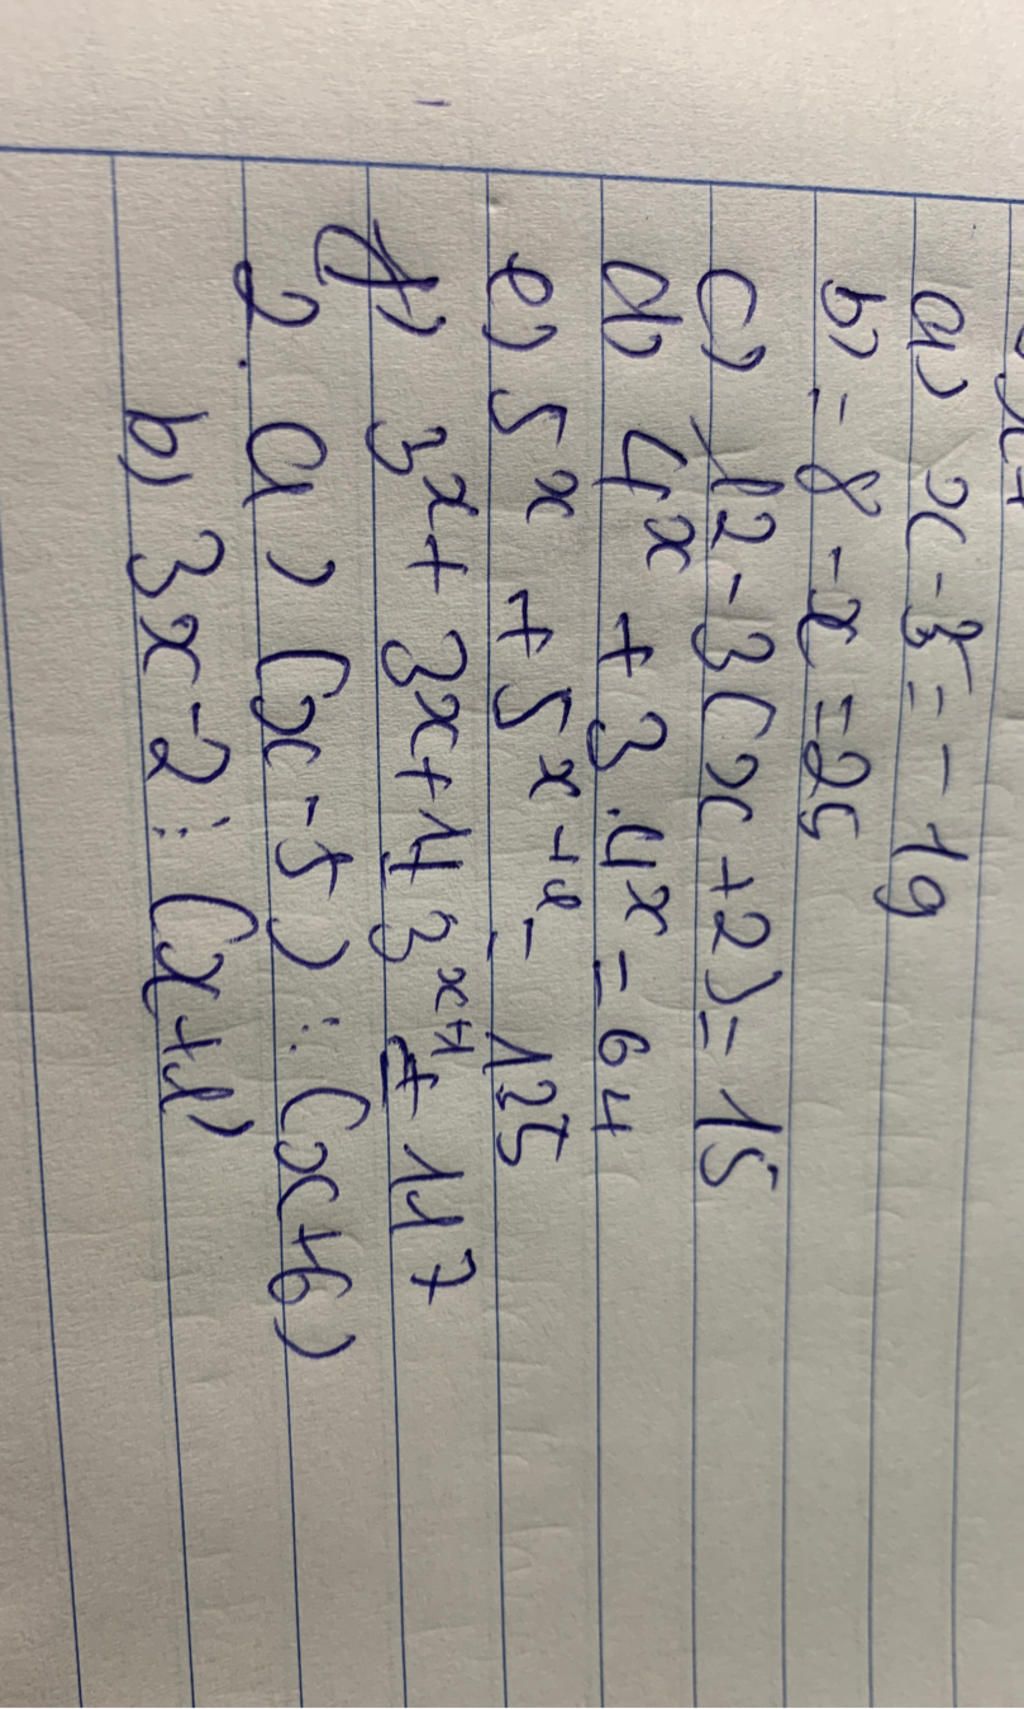 a) x - 3 = - 19
b) - 8 - x = 25
c) 12 - 3(x + 2) = 15
d) 4^x + 3.4^x = 64
e) 5^x + 5^x+2 = 125
f) 3^x + 3^x+1 + 3^x+1 = 117
2. a) (x - 5) ⋮ (x+6)
b) 3x - 2 ⋮ (x+1)